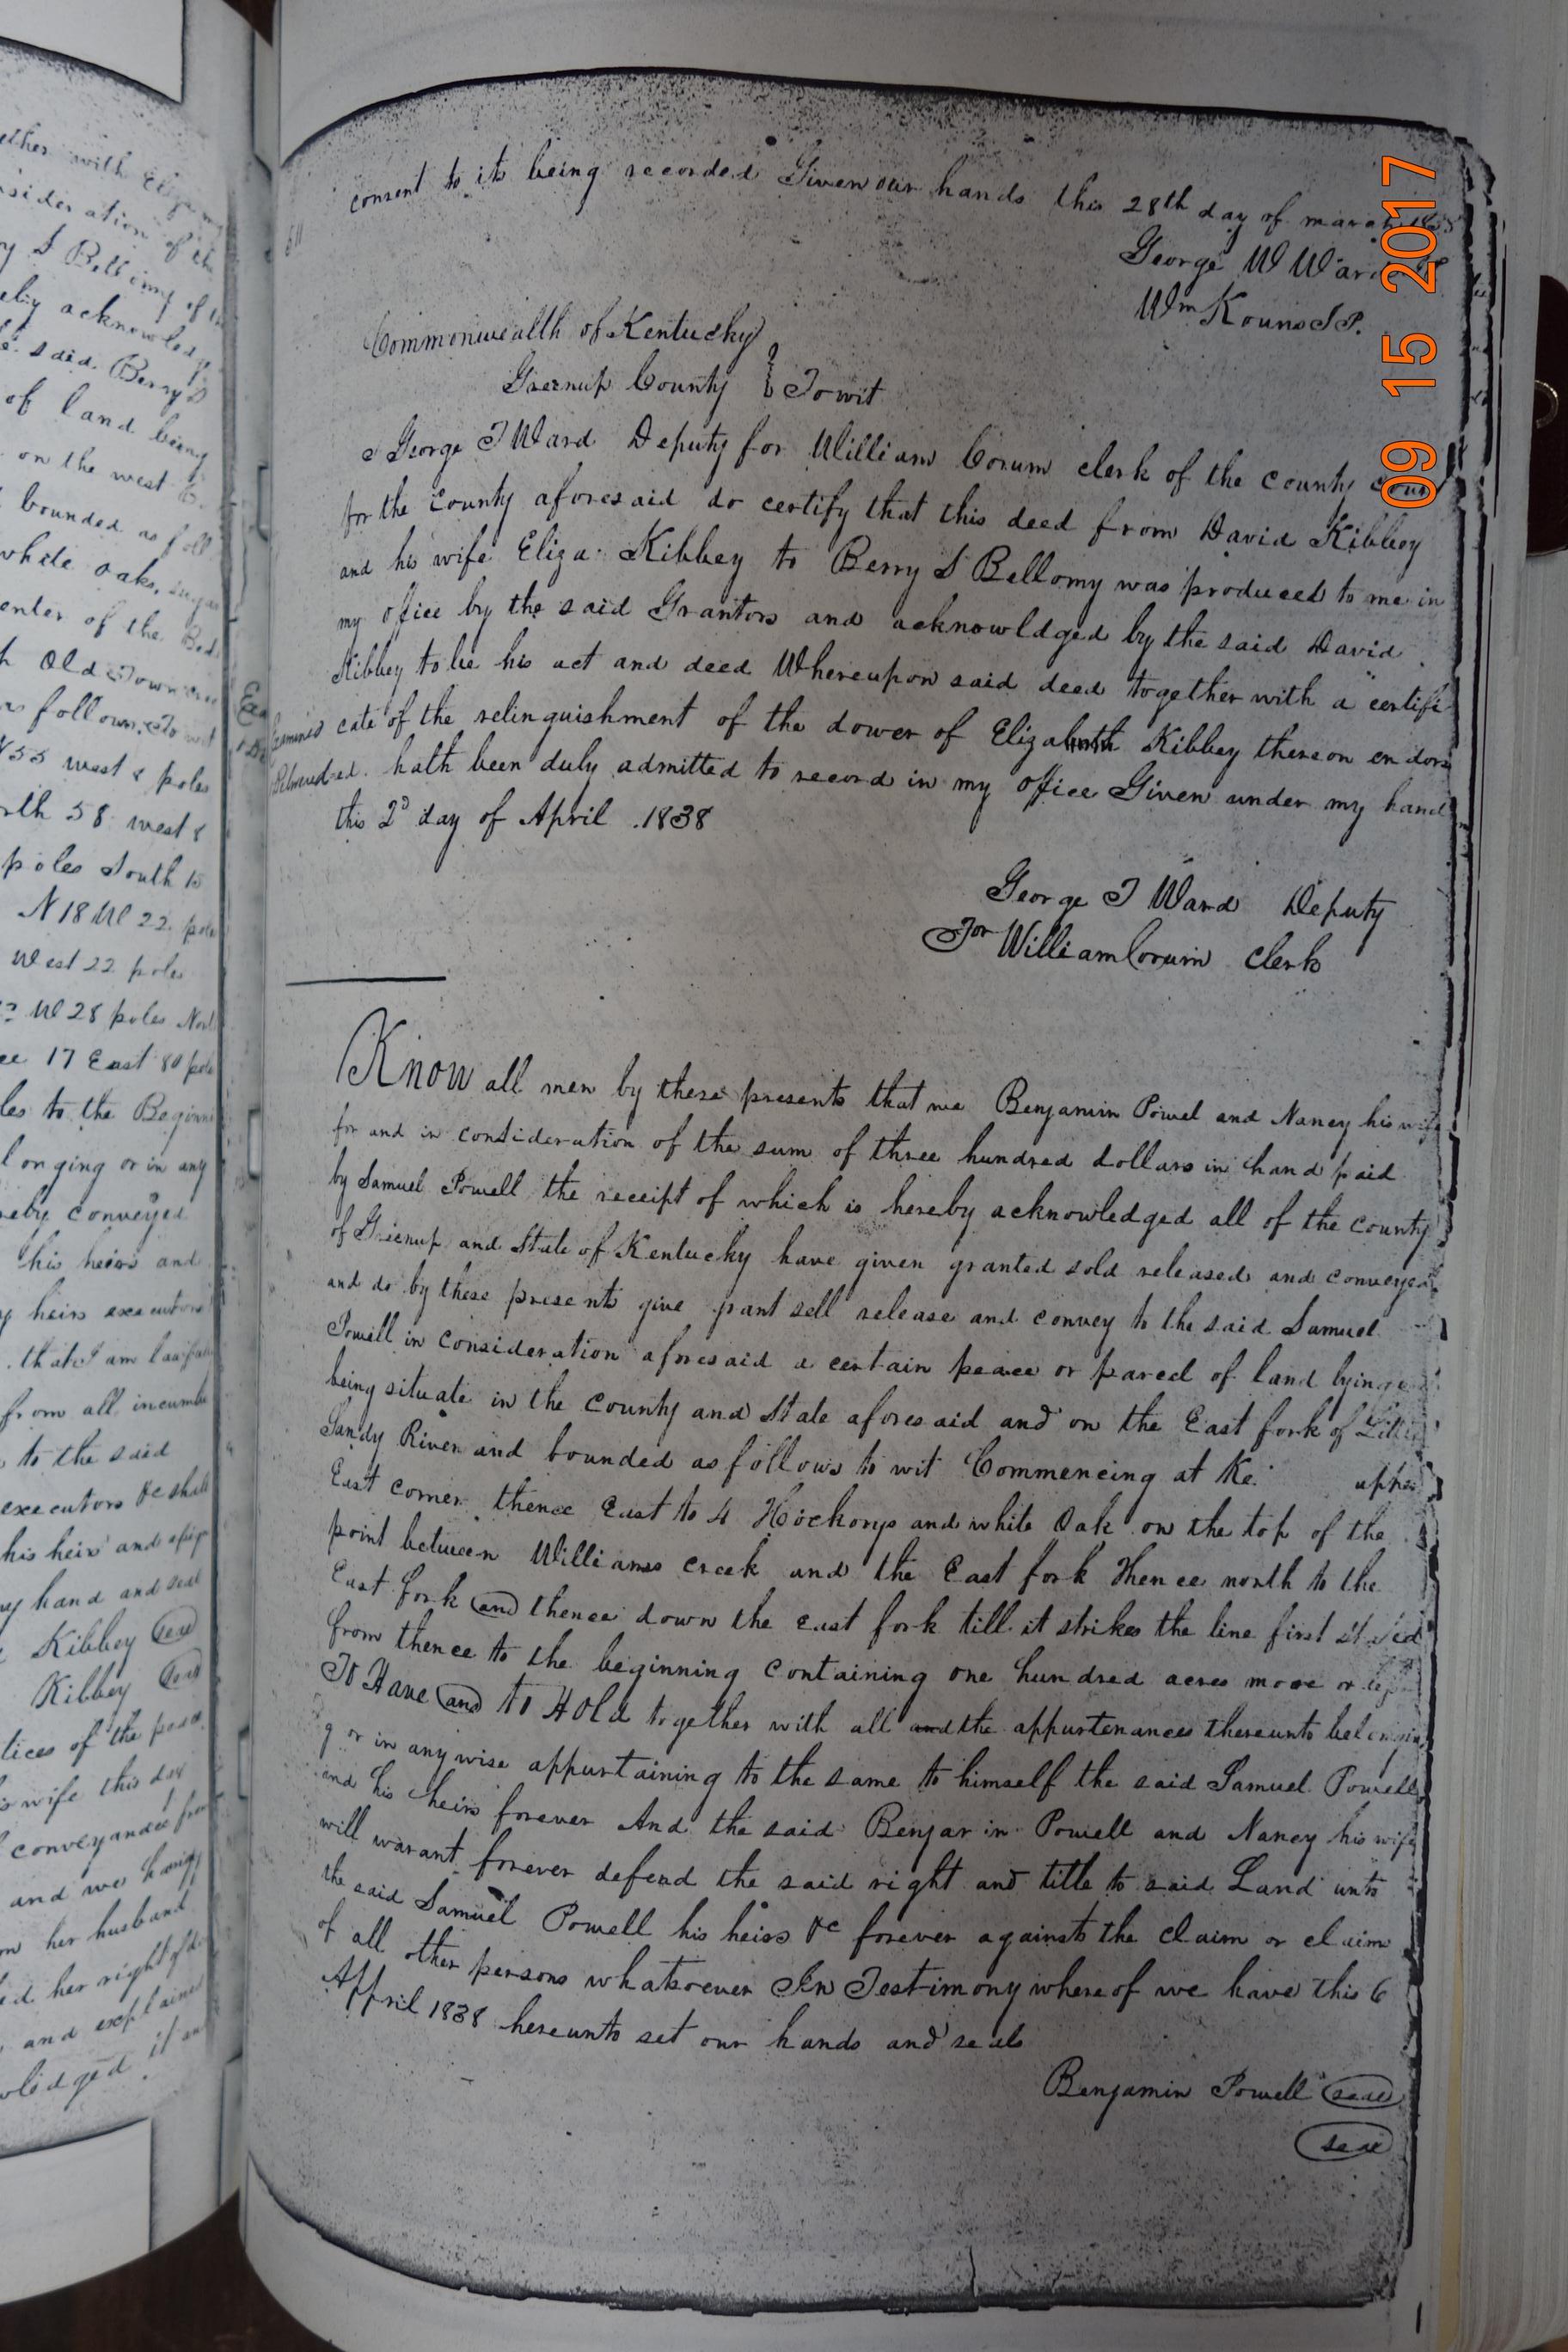 consent to its being recorded Given our hands this 28th day of march
George W Ward
Wm Kouns J.P.
Commonwealth of Kentucky
Greenup County } Towit
I George T Ward Deputy for William Corum clerk of the county court
for the county aforesaid do certify that this deed from David Kibbey
and his wife Eliza Kibbey to Berry S Bellomy was produced to me in
my office by the said Grantors and acknowldged by the said David
Kibbey to be his act and deed Whereupon said deed together with a certifi
cate of the relinquishment of the dower of Elizabeth Kibbey thereon endors
ed. hath been duly admitted to record in my office Given under my hand
this 2d day of April 1838
George T Ward Deputy
For William Corum Clerk
Know all men by these presents that we Benjamin Powel and Nancy his wife
for and in consideration of the sum of three hundred dollars in hand paid
by Samuel Powell the receipt of which is hereby acknowledged all of the county
of Greenup and State of Kentucky have given granted sold released and conveyed
and do by these presents give grant sell release and convey to the said Samuel
Powell in consideration aforesaid a certain peace or parcel of land lying
being situate in the county and State aforesaid and on the East fork of Little
Sandy River and bounded as follows to wit Commencing at Ke. upper
East corner thence East to 4 Hockorys and white Oak on the top of the
point between Williams creek and the East fork thence north to the
East fork and thence down the east fork till it strikes the line first stated
from thence to the beginning containing one hundred acres more or less
To Have and to Hold together with all and the appurtenances thereunto belongin
g or in anywise appurtaining to the same to himself the said Samuel Powell
and his heirs forever And the said Benjamin Powell and Nancy his wife
will warant forever defend the said right and title to said Land unto
the said Samuel Powell his heirs &c forever against the claim or claim
of all other persons whatsoever In Testimony whereof we have this 6
April 1838 hereunto set our hands and seals
Benjamin Powell seal
seal
09 15 2017
ether with
sideration of the
y S Bellomy of
eby acknowledge
said Berry S
of land being
on the west
bounded as foll
white oaks, sugar
enter of the Bed
Old Town
as follows To wit
N 55 west 8 poles
rth 58 west 8
poles South 15
N 18 W 22 pole
West 22 poles
W 28 poles Nort
17 East 80 pole
les to the Beginni
longing or in any
reby conveyed
his heirs and
y heirs executors
that I am lawful
from all incumbe
to the said
executors &c shall
his heirs and
my hand and seal
Kibbey seal
Kibbey seal
tices of the peace
s wife this day
conveyance from
and we having
m her husband
ed her right of
and explained
wledged it